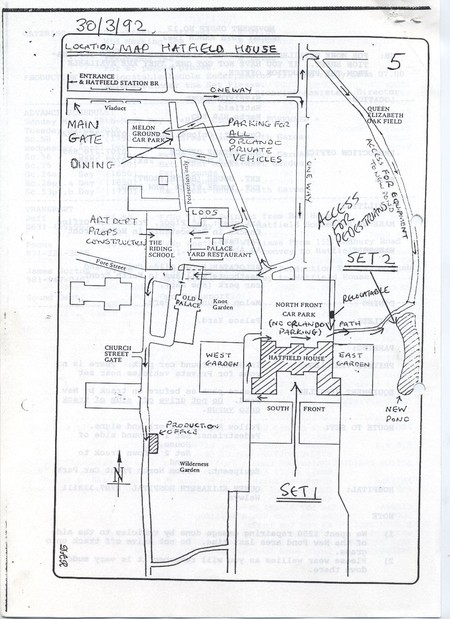 30/3/92.
LOCATION MAP HATFIELD HOUSE
5
ENTRANCE
& HATFIELD STATION BR
ONEWAY
Viaduct
QUEEN
ELIZABETH
OAK FIELD
MAIN
GATE
MELON
GROUND
CAR PARK
PARKING FOR
ALL
ORLANDO
PRIVATE
VEHICLES
DINING
ONE WAY
ACCESS FOR EQUIPMENT
TO NEW POND
Pedestrians only
LOOS
ACCESS
FOR
PEDESTRIANS
ART DEPT
PROPS
CONSTRUCTION
THE
RIDING
SCHOOL
PALACE
YARD RESTAURANT
SET 2
Fore Street
OLD
PALACE
Knot
Garden
NORTH FRONT
CAR PARK
(NO ORLANDO
PARKING)
RELOCATABLE
PATH
CHURCH
STREET
GATE
WEST
GARDEN
HATFIELD HOUSE
EAST
GARDEN
SOUTH FRONT
NEW
POND
PRODUCTION
OFFICE
N
Wilderness
Garden
SET 1